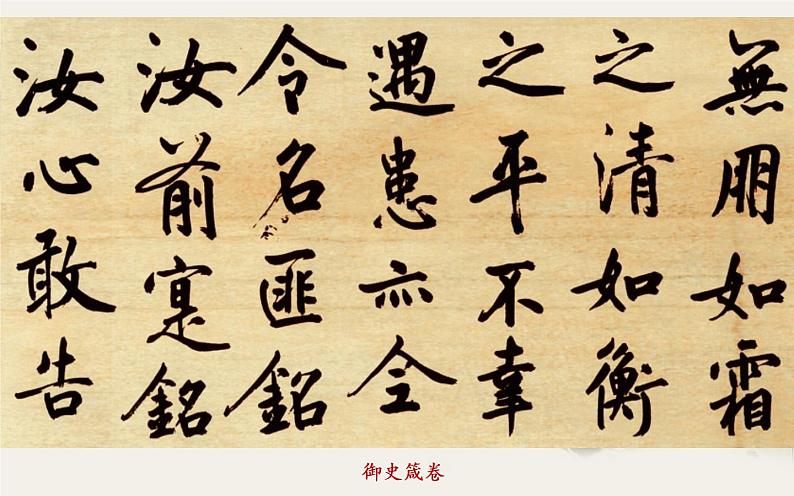 無朋如霜
之清如衡
之平不幸
遇患亦令
令名匪銘
汝前寔銘
汝心敢告
御史箴卷